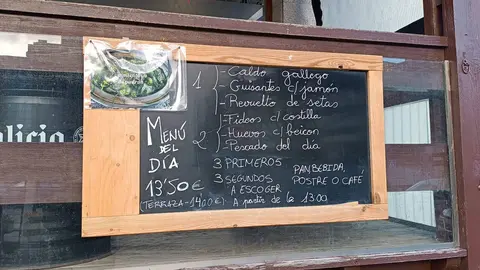 alicia
MENÚ
DEL
DÍA
13'50€
(TERRAZA-14,00€)
1
-Caldo gallego
-Guisantes c/jamón
-Revuelto de setas
2
-Fideos c/costilla
-Huevos c/beicon
-Pescado del día
3 PRIMEROS
3 SEGUNDOS
A ESCOGER
PAN, BEBIDA,
POSTRE O CAFÉ
A partir de la 13:00